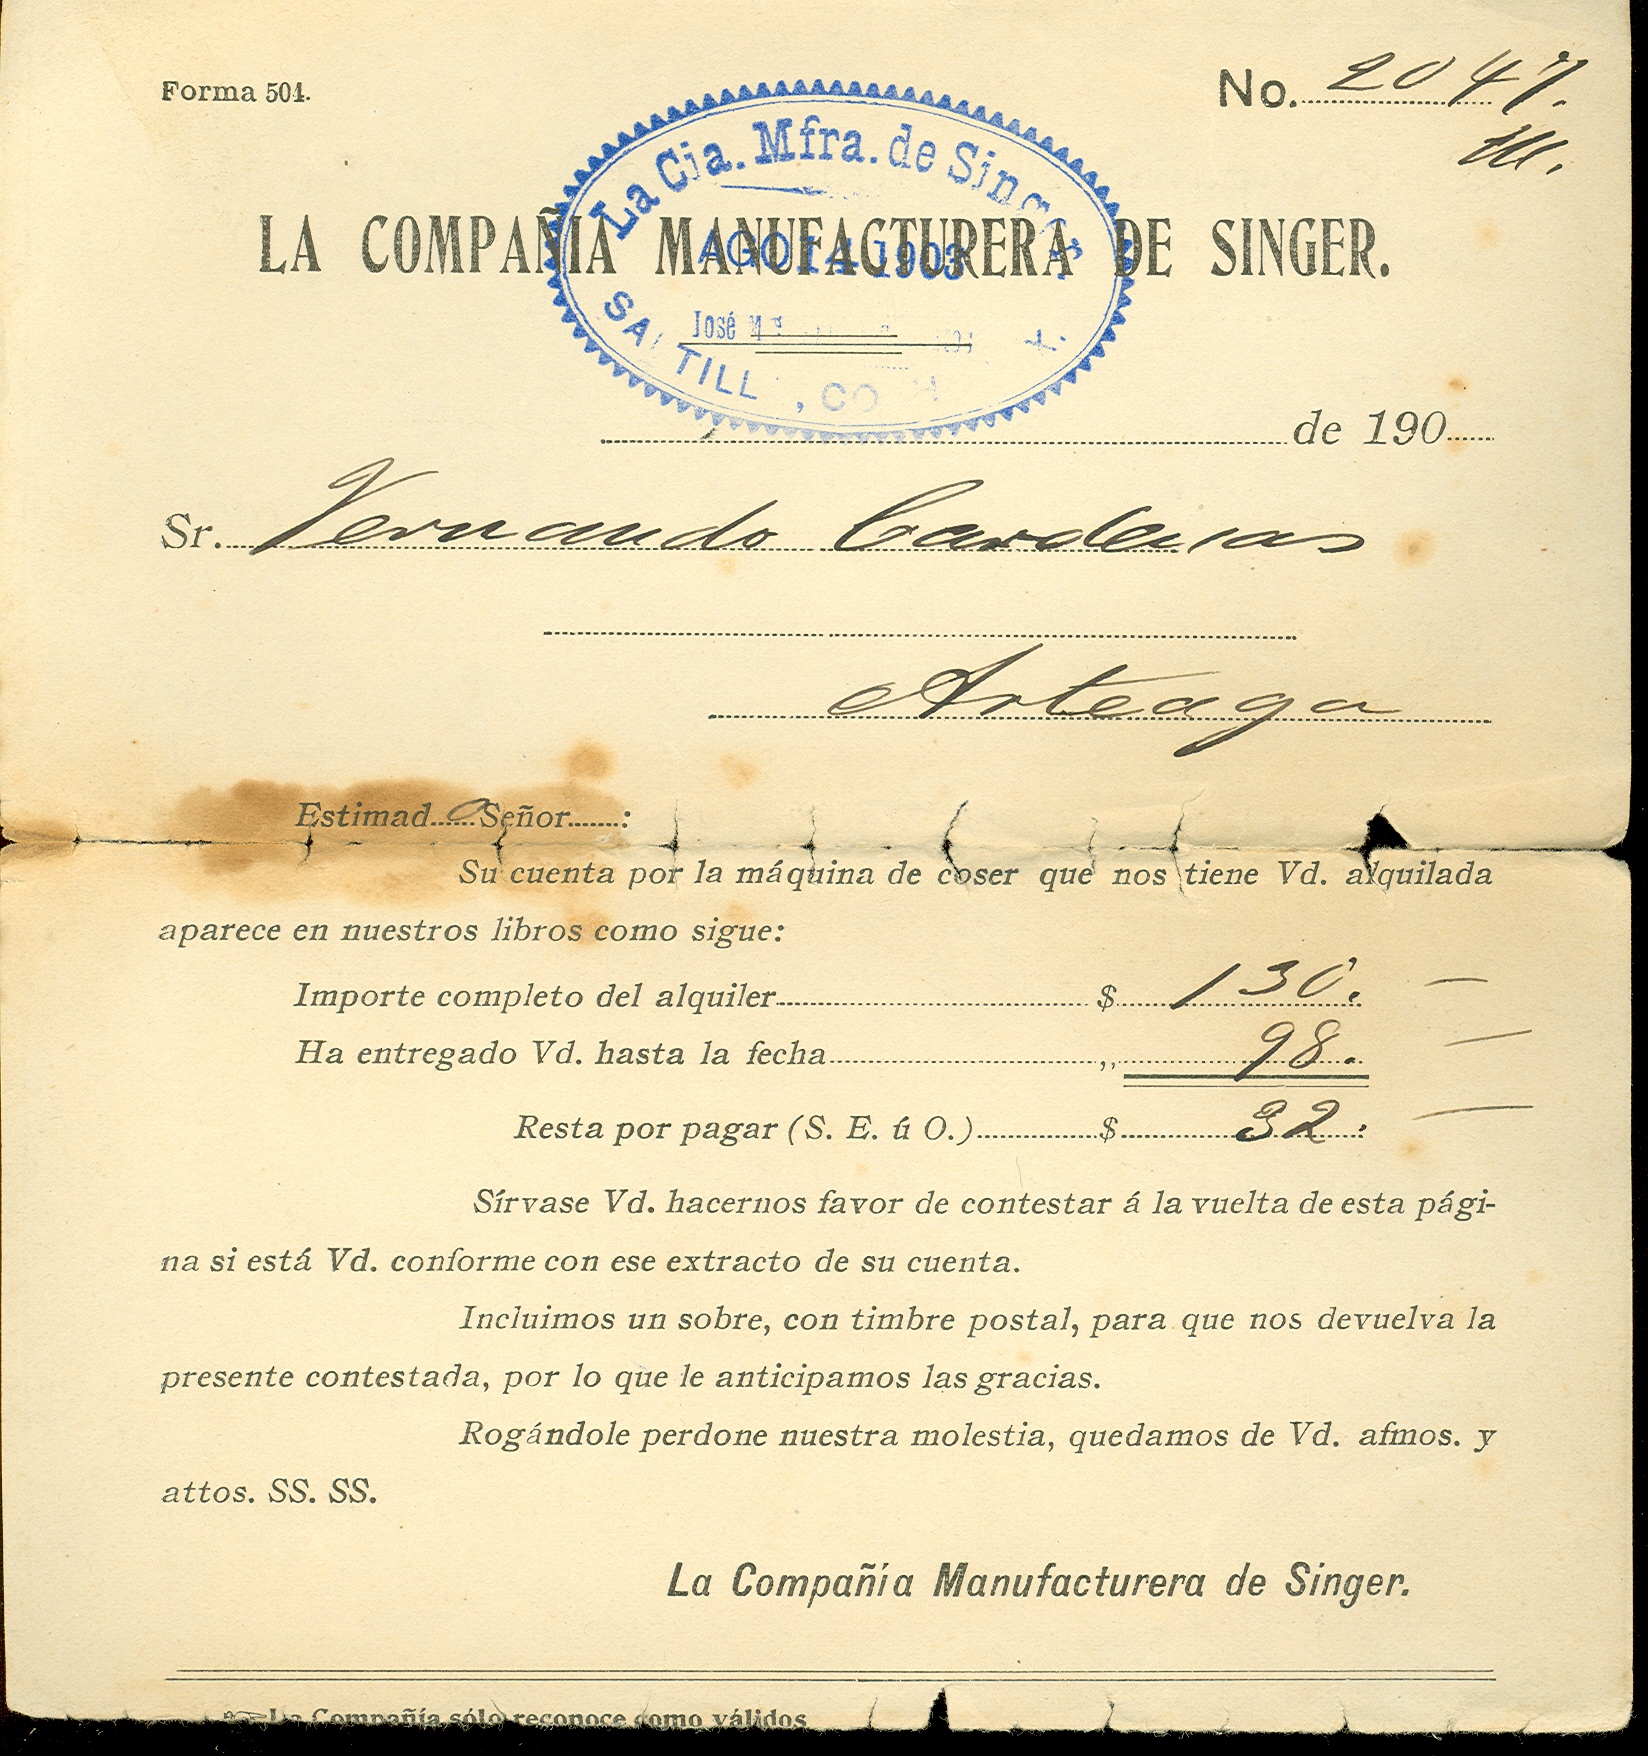 Forma 504.
No. 2047.
La Cia. Mfra. de Singer
LA COMPAÑIA MANUFACTURERA DE SINGER.
AGO 14 1903
José
SALTILLO, COAH
de 190
Sr. Fernando Cardenas
Arteaga
Estimad o Señor :
Su cuenta por la máquina de coser que nos tiene Vd. alquilada
aparece en nuestros libros como sigue:
Importe completo del alquiler $ 130. —
Ha entregado Vd. hasta la fecha ,, 98. —
Resta por pagar (S. E. ú O.) $ 32. —
Sírvase Vd. hacernos favor de contestar á la vuelta de esta pági-
na si está Vd. conforme con ese extracto de su cuenta.
Incluimos un sobre, con timbre postal, para que nos devuelva la
presente contestada, por lo que le anticipamos las gracias.
Rogándole perdone nuestra molestia, quedamos de Vd. afmos. y
attos. SS. SS.
La Compañía Manufacturera de Singer.
La Compañía sólo reconoce como válidos